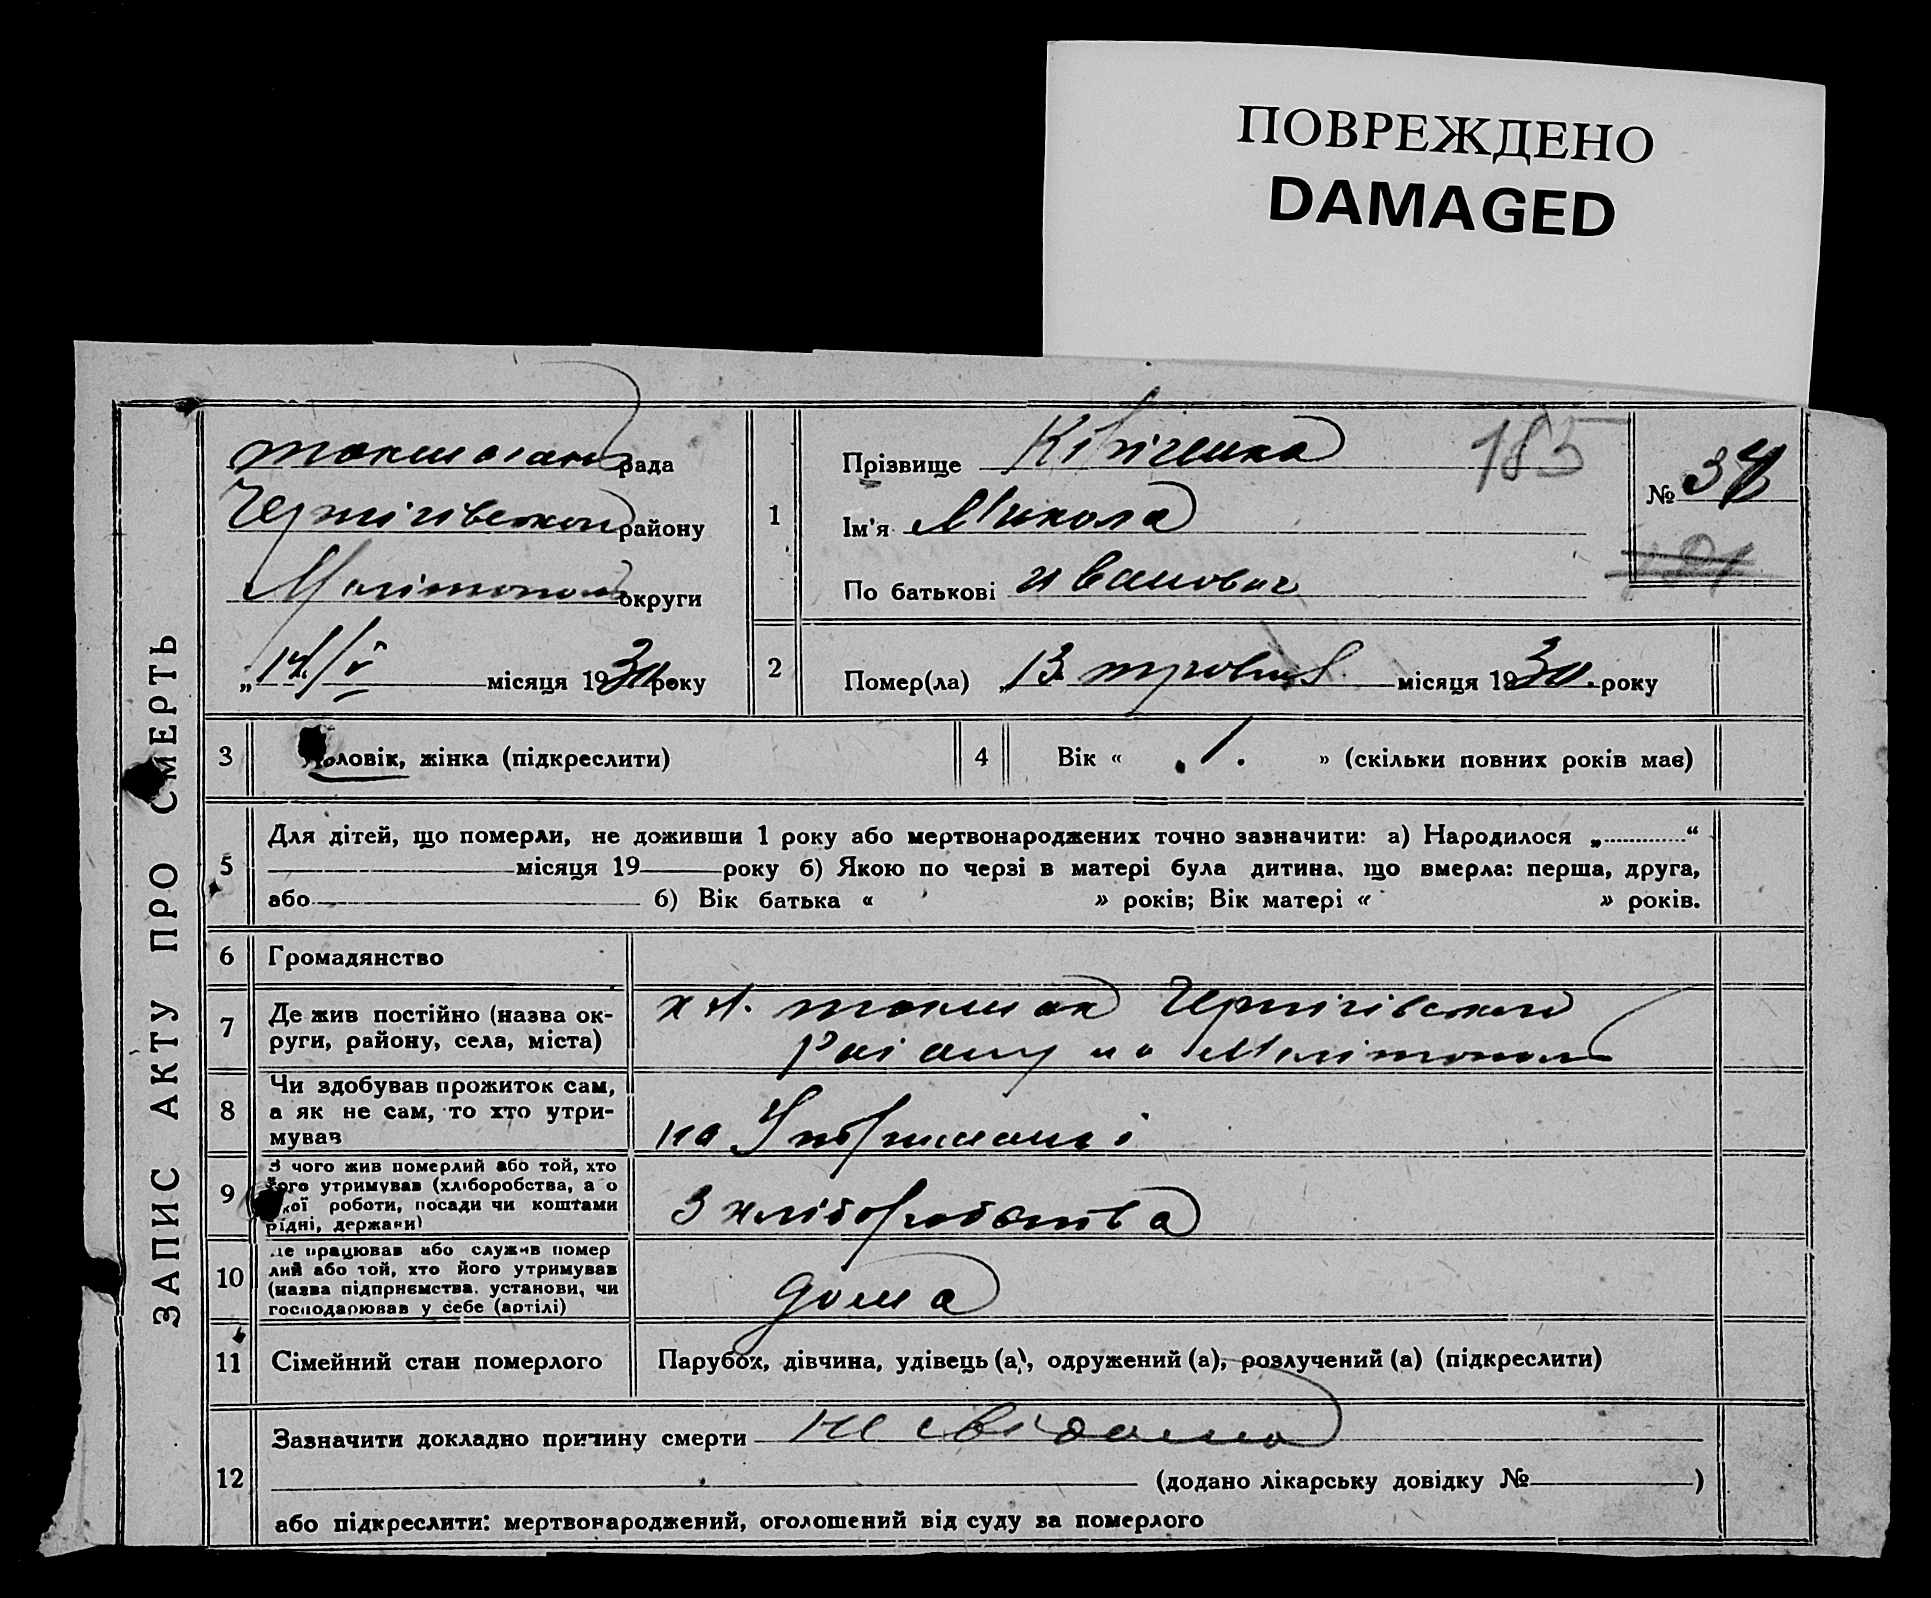 ПОВРЕЖДЕНО
DAMAGED
ЗАПИС АКТУ ПРО СМЕРТЬ
рада
Чернігівськои району
округи
„14/V місяця 1930 року
1
Прізвище
185
Ім'я Микола
По батькові иванович
№ 34
2
Помер(ла) „13 травня місяця 1930. року
3
оловік, жінка (підкреслити)
4
Вік « .1. » (скільки повних років має)
5
Для дітей, що померли, не доживши 1 року або мертвонароджених точно зазначити: а) Народилося „ “
місяця 19 року б) Якою по черзі в матері була дитина, що вмерла: перша, друга,
або б) Вік батька « » років; Вік матері « » років.
6
Громадянство
7
Де жив постійно (назва ок-
руги, району, села, міста)
хут. токмак Чернігівского
раіону на Мелітополь
8
Чи здобував прожиток сам,
а як не сам, то хто утри-
мував
на Утриманні
9
З чого жив померлий або той, хто
його утримував (хліборобства, а о
кої роботи, посади чи коштами
рідні, держави)
З хліборобства
10
Де працював або служив помер
лий або той, хто його утримував
(назва підприємства, установи, чи
господарював у себе (артілі)
дома
11
Сімейний стан померлого
Парубок, дівчина, удівець (а), одружений (а), розлучений (а) (підкреслити)
12
Зазначити докладно причину смерти не свідома
(додано лікарську довідку № )
або підкреслити: мертвонароджений, оголошений від суду за померлого